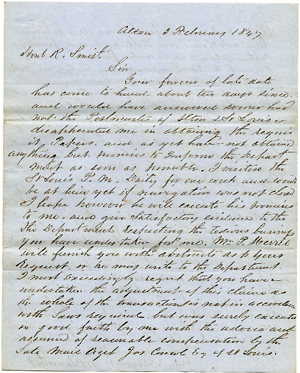 Alton 3 February 1847
Hon. R. Smith.
Sir
Your favour of late date
has come to hand about two days since
and would have answered sooner had
not the Postmaster of Alton & St Louis
disappointed me in obtaining the requi-
Papers. and as yet have not obtained
anything but promises to Inform the Depart-
ment as soon as possible. I waited the
St Louis P.M. for one week and would
be at hive yet if navigation was not closed
I hope however he will execute his promise
to me. and give satisfactory evidence to the
The Department respecting the
you have undertaken for me. Mr P
will furnish you with abstracts as p your
Request, or he may write to the Department
I most sincerely regret that you have
undertaken the adjustment of this claim as
the whole of the transaction is not in accordance
with Laws required but was surely executed
in good faith by me with the advice and
assured of reasonable compensation by the
Late Mail Agt Jos Esq of St Louis.